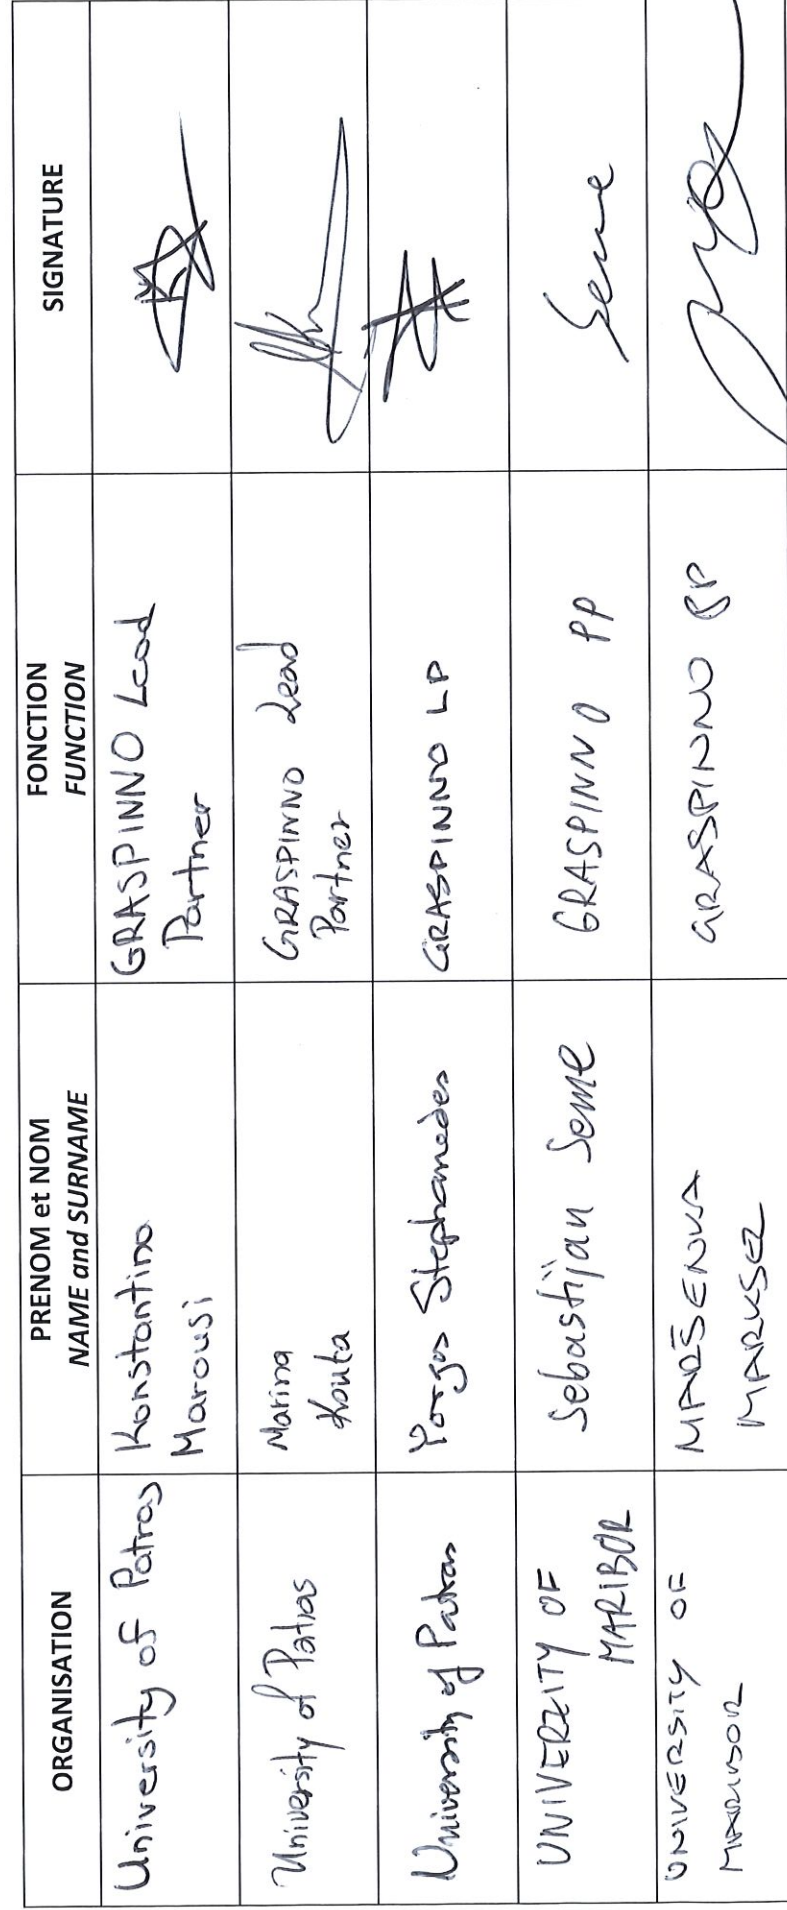 ORGANISATION
PRENOM et NOM
NAME and SURNAME
FONCTION
FUNCTION
SIGNATURE
University of Patras
Konstantina
Marousi
GRASPINNO Lead
Partner
University of Patras
Marina
Kouta
GRASPINNO Lead
Partner
University of Patras
Yorgos Stephanedes
GRASPINNO LP
UNIVERZITY OF
MARIBOR
Sebastijan Seme
GRASPINNO PP
Seme
UNIVERSITY OF
MARIBOR
MARŠENKA
MARKSEL
GRASPINNO PP